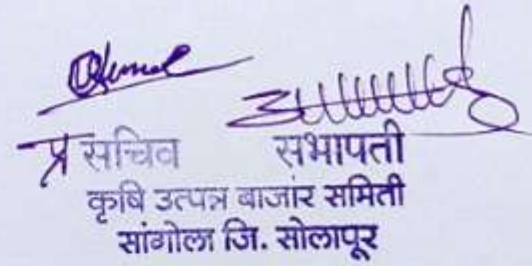 प्र सचिव सभापती
कृषि उत्पन्न बाजार समिती
सांगोला जि. सोलापूर